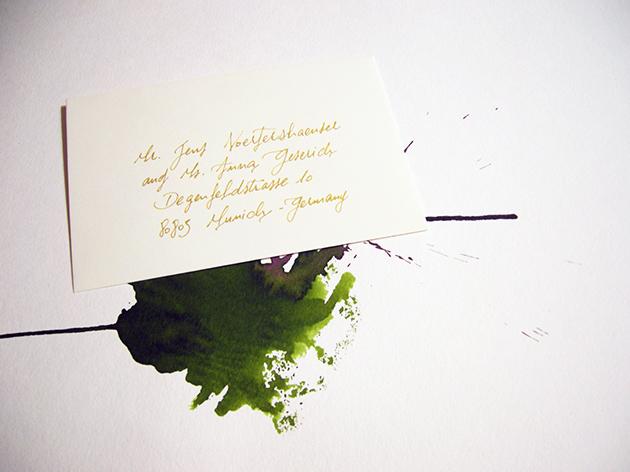 Mr. Jens Noertershaeuser
and Ms. Anna Geserich
Degenfeldstrasse 10
80803 Munich - Germany